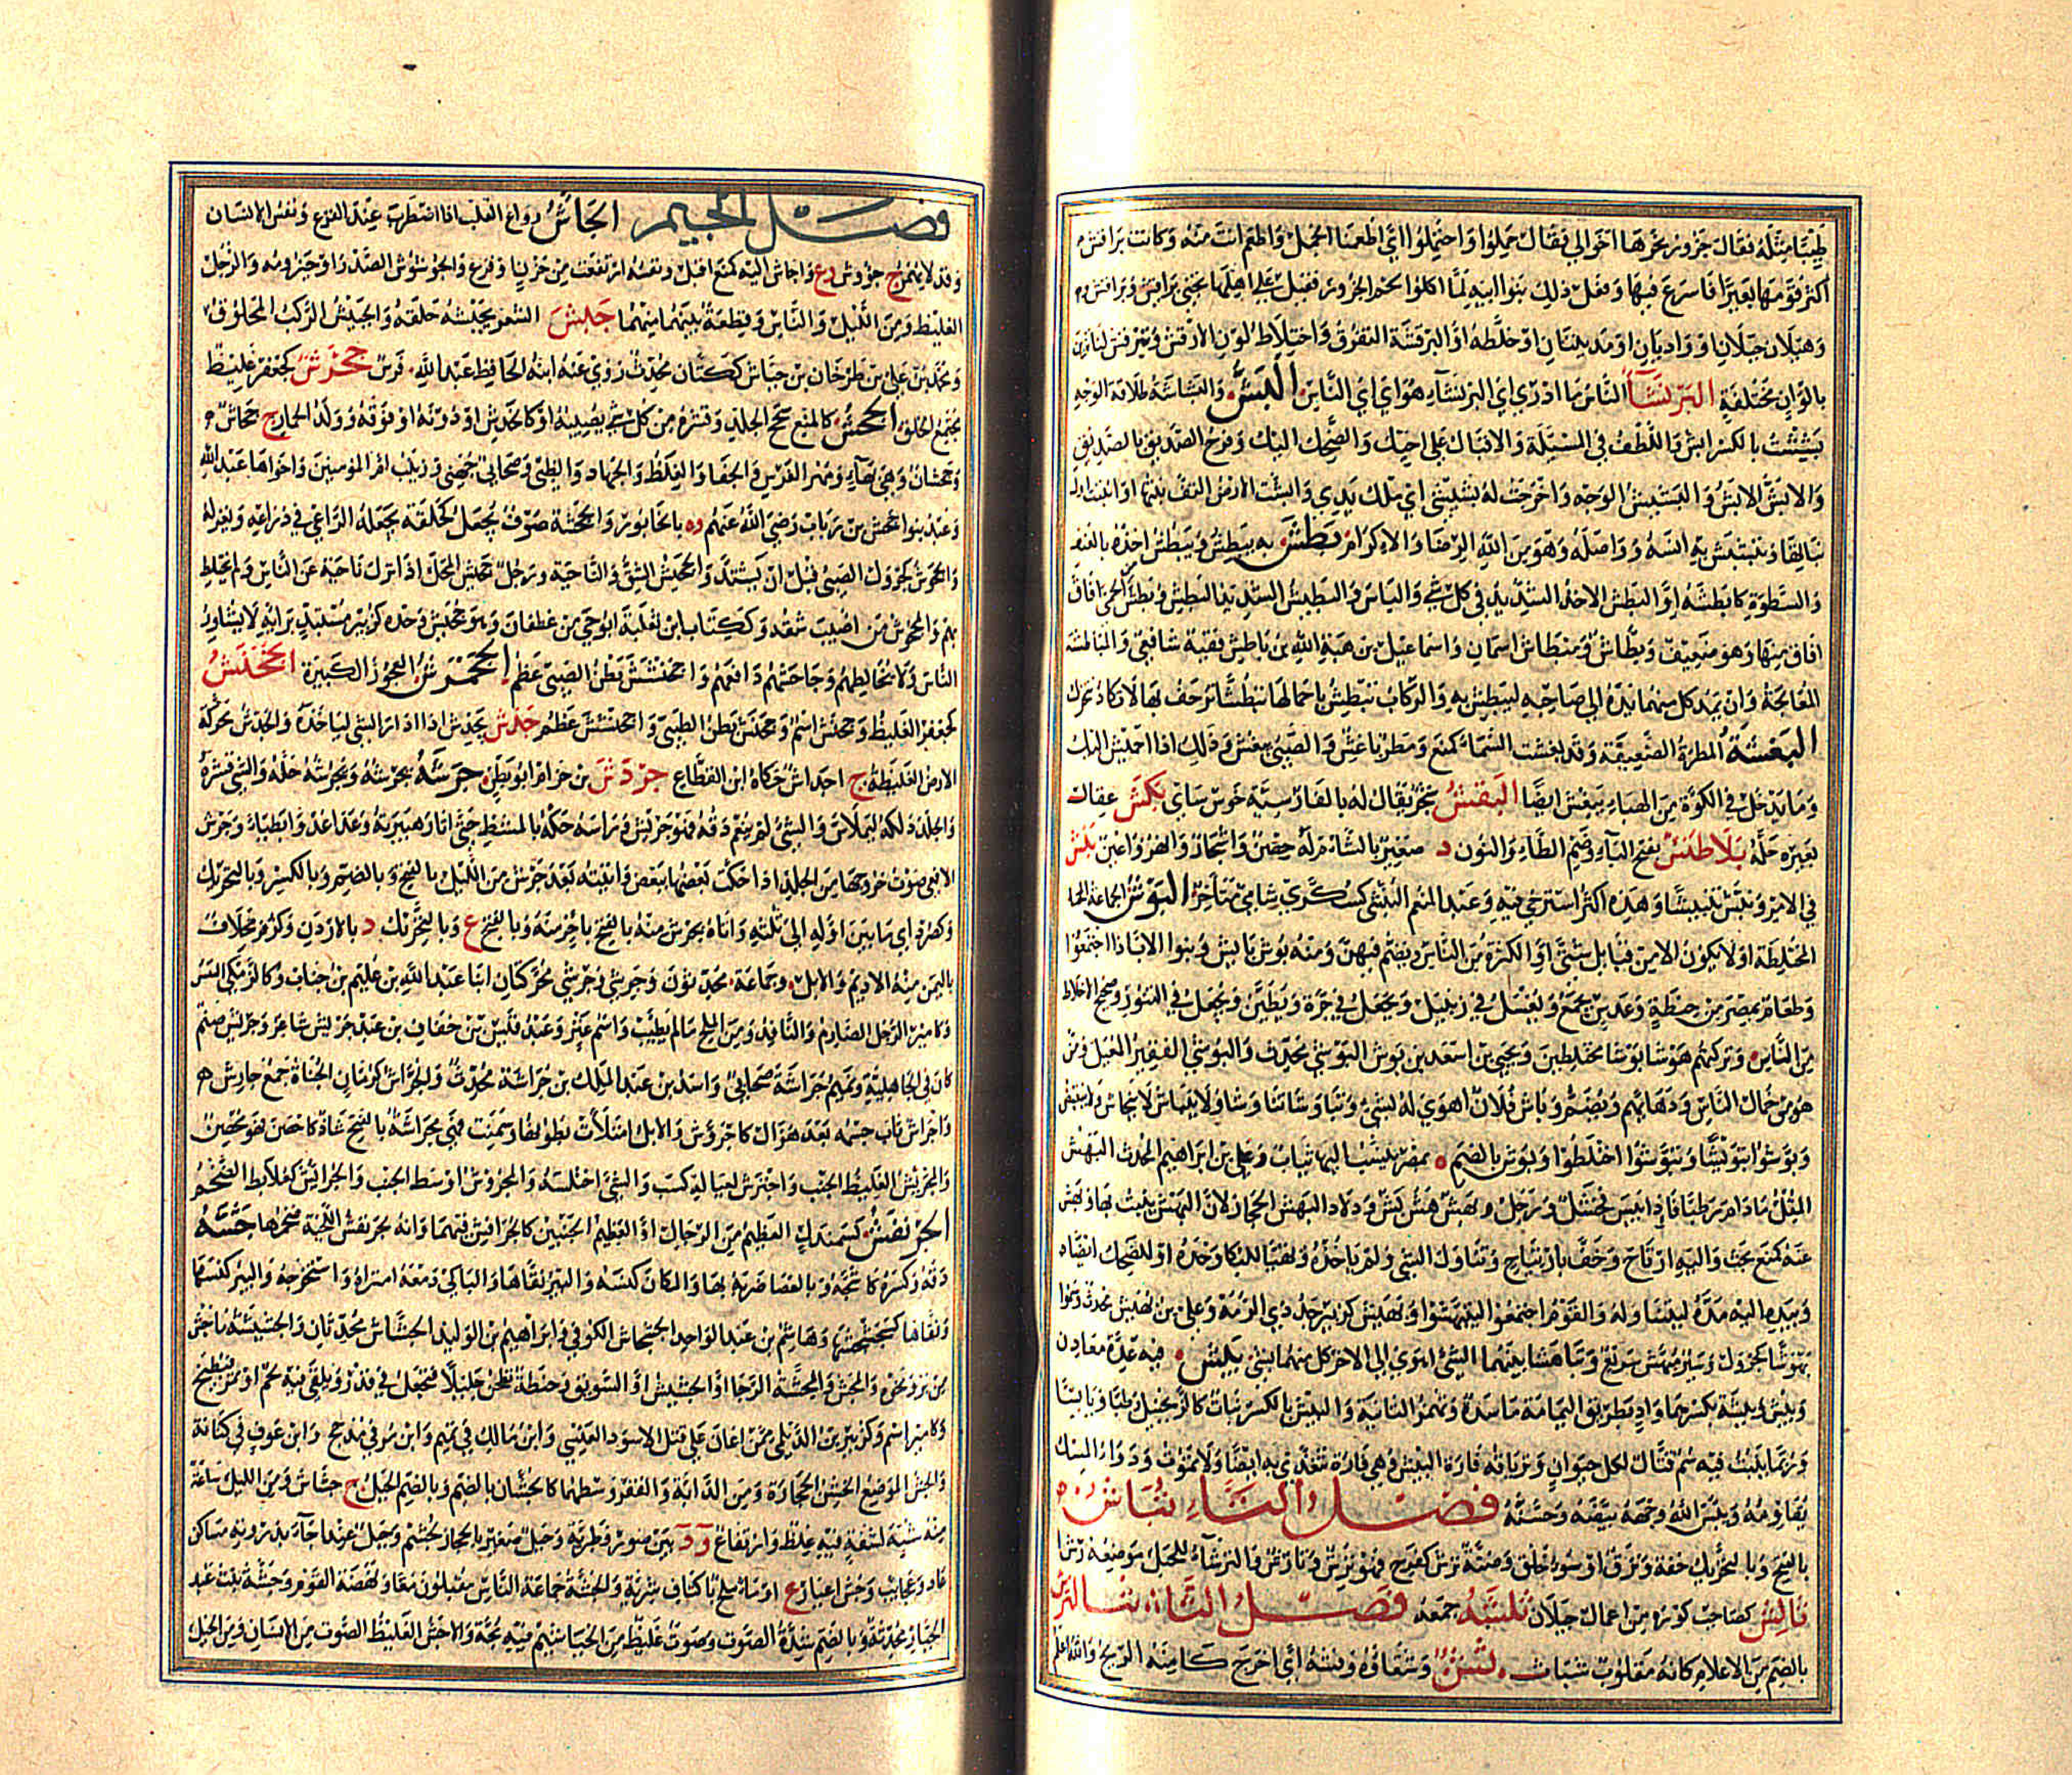 طبيبا مثله فقال جزور نحرها اخوالي فقال حملوا واحتملوا اي اطعمنا الجمل واطعم انت منه وكانت براقش
اكثر قومها بعيرا فاسرع فيها وفعل ذلك بنو ابيه لما اكلوا لحم الجزور فقيل على اهلها تجني براقش وبراقش
وهيلان جبلان او واديان او مدينتان او خلطه او البرقشة التفرق واختلاط لون الارقش وتبرقش لنا تزين
بالوان مختلفة البرنشآ الناس ما ادري اي البرنشاء هو اي اي الناس البش والبشاشة طلاقة الوجه
بششت بالكسر ابش واللطف في المسئلة والاقبال على اخيك والضحك اليك وفرح الصديق بالصديق
والابش الابش والبشيش الوجه واخرجت له بشيشي اي ملك يدي وابشت الارض التف نبتها او انبتت اول
نباتها وتبشبش به انسه وواصله وهو من الله الرضا والاكرام بطش به يبطش ويبطش اخذه بالعنف
والسطوة كابطشه او البطش الاخذ الشديد في كل شي والباس والبطيش الشديد البطش وبطش من الحمى افاق
افاق منها وهو ضعيف وبطاش ومبطاش اسمان واسماعيل بن هبة الله بن باطيش فقيه شافعي والمباطشة
المعالجة وان يمد كل منهما يده الى صاحبه ليبطش به والركاب تبطش باحمالها تبطشا تزحف بها لا تكاد تتحرك
البغشة المطرة الضعيفة وقد بغشت السماء كمنع ومطر باغش والصبي يبغش وذلك اذا اجهش اليك
وما يدخل في الكوة من الهباء يبغش ايضا البقش شجر يقال له بالفارسية خوش ساي بكش عقال
بعيره حله بلاطنش بفتح الباء وضم الطاء والنون د صغير بالشام له حصن واشجار وانهر واعين بلش
في الامر وبنش تبنيشا وهذه اكثر استرخى فيه وعبد المنعم البنشي كسكري شامي متاخر البوش الجماعة
المختلطة او لا يكون الا من قبائل شتى او الكثرة من الناس ويضم فيهن ومنه بوش بايش وبنو الاب اذا اجتمعوا
وطعام بمصر من حنطة وعدس يجمع ويغسل في زنبيل ويجعل في جرة ويطين ويجعل في التنور وضجيج الاخلاط
من الناس وتركهم هوشا بوشا مختلطين ويحيى بن اسعد بن بوش البوشي محدث والبوشي الفقير المعيل ومن
هو من خمان الناس ودهمائهم ويضم وباش فلان اهوى له بشي وتباوشا تناوشا ولا ينباش لا ينحاش ولا ينقبض
وبوشوا تبويشا وتبوشوا اختلطوا وبوش بالضم ه بمصر ينسب اليها ثياب وعلي بن ابراهيم المحدث البهش
المقل ما دام رطبا فاذا يبس فخشل ورجل بهش هش بش وبلاد البهش الحجاز لان البهش ينبت بها وبهش
عنه كمنع بحث واليه ارتاح وخف بارتياح وتناول الشي ولم ياخذه وتهيأ للبكا وحده او للضحك ايضاه
وبيده اليه مدها ليتناوله والقوم اجتمعوا كتبهشوا وبهيش كزبير جد ذي الرمة وعلي بن بهيش محدث
بهوش كجرول وسير مبهش سريع وتباهشا بينهما الشي اهوى الى الاخر كل منهما بشي بيش فيه عدة معادن
وبيش وبيشة بكسرهما واد بطريق اليمامة ماسدة وتهمز الثانية والبيش بالكسر نبات كالزنجبيل رطبا ويابسا
وربما ينبت فيه سم قتال لكل حيوان وترياقه فارة البيش وهي فارة تتغذى به ايضا ولا تموت ودواء المسك
يقاومه وبيش الله وجهه بيضه وحسنه فصل التاء تباش
بالفتح وبالتحريك خفة ونزق او سوء خلق وضنة ترش كفرح فهو ترش وتارش والترشاء للحبل موضعه رشا
تالش كصاحب كورة من اعمال جيلان تلشه جمعه فصل الثاء ثباش
بالضم من الاعلام كانه مقلوب شباث وسقاؤه وفشه اي اخرج كا منه الريح والله اعلم
فصل الجيم الجأش رواع القلب اذا اضطرب عند الفزع ونفس الانسان
وقد لا يهمز ج جؤوش وع وجاش اليه كمنع اقبل ونفسه ارتفعت من حزن او فزع والجؤشوش الصدر او حيزومه والرجل
الغليظ ومن الليل والناس وقطعة بينهما منهما جبش الشعر يجبشه حلقه والجبيش الركب المحلوق
ومحمد بن علي بن طرخان بن جباش ككتان محدث روى عنه ابنه الحافظ عبد الله فرس جحرش كجعفر غليظ
مجتمع الخلق الجحش كالمنع سحج الجلد وقشره من كل شي يصيبه او كالخدش او دونه او فوقه وولد الحمار ج جحاش
وجحشان وهي بهاء ومهر الفرس والجفا والغلظ والجهاد والظبي وصحابي جهني وزينب ام المومنين واخواها عبد الله
وعبد بنوا جحش بن رباب رضي الله عنهم وه بالخابور والجحشة صوف يجعل كحلقة يجعله الراعي في ذراعه ويغزله
والجحوش كجرول الصبي قبل ان يشتد والجحيش الشق والناحية ورجل جحيش المحل اذا نزل ناحية عن الناس ولم يختلط
بهم والمجحوش من اصيب شقه وككتاب ابن ثعلبة ابو حي من غطفان وهو جحيش وحده كزبير مستبد برايه لا يشاور
الناس ولا يخالطهم وجاحشهم دافعهم واجحنشش بطن الصبي عظم الجحمرش العجوز الكبيرة الجحنش
كجعفر الغليظ وجحنش اسم وجحنش بطن الصبي واجحنشش عظم جدش يجدش اذا اراد الشي لياخذه والجدش محركة
الارض الغليظة ج اجداش حكاه ابن القطاع جردش بن حرام ابو بطن جرشه يجرشه ويجرشه حكه والشي قشره
والجلد دلكه ليملاس والشي لم ينعم دقه فهو جريش وراسه حكه بالمشط حتى اثار هبريته وعدا عدوا بطيا وجرش
الافعى صوت خروجها من الجلد اذا حكت بعضها ببعض واتيته بعد جرش من الليل بالفتح وبالضم وبالكسر وبالتحريك
وكصرد اي ما بين اوله الى ثلثه واتاه بجرش منه بالفتح باخر منه وبالفتح ع وبالتحريك د بالاردن وكزفر مخلاف
باليمن منه الاديم والابل وجماعة محدثون وجريشي وجرشي محركتان ابنا عبد الله بن عليم بن جناب وكالزمكى النفس
وكامير الرجل الصارم والنافذ ومن الملح ما لم يطيب واسم عنز وعبد قيس بن خفاف بن عبد جريش شاعر وجريش صنم
كان في الجاهلية وتميم جراشة صحابي واسد بن عبد الملك بن جراشة محدث والجراس كرمان الجناة جمع جارش هو
واجراش ثاب جسمه بعد هزال كاجروش والابل امتلأت بطونها وسمنت فهي مجراشة بالفتح شاذ كاحصن فهو محصن
والمجرئش الغليظ الجنب واجترش لعياله كسب والشي اختلسه والمجروش اوسط الجنب والجرائش كعلابط الضخم
الجرنفش كسمندل العظيم من الرجال او العظيم الجنبين كالجرافش فيهما وانه جرنفش اللحية ضخمها جشه
دقه وكسره كاجشه وبالعصا ضربه بها والمكان كنسه والبير نقاها والباكي دمعه امتراه واستخرجه والبير كنسها
ونقاها كجشجشها وهاشم بن عبد الواحد الجشاش الكوفي وابراهيم بن الوليد الجشاش محدثان والجشيشة ما جش
من بر ونحوه والمجش والمجشة الرحا او الجشيش او السويق وحنطة تطحن جليلا فتجعل في قدر ويلقى فيه لحم او تمر فيطبخ
وكامير اسم وكزبير بن الديلمي ممن اعان على قتل الاسود العنسي وابن مالك في تميم وابن مر في مذحج وابن عوف في كنانة
والجش الموضع الخشن الحجارة ومن الدابة والقفر وسطهما كالجشان بالضم وبالضم الجبل ج جشاش ومن الليل ساعة
منه شبه لشفة فيه غلظ وارتفاع ود بين صور وطبرية وجبل صغير بالحجاز لجشم وجبل عند اجاء بذروته مساكن
عاد وعجائب وجش اعيار ع او ماء ملح باكناف شربة والجشة جماعة الناس مقبلون معا ونهضة القوم وجشة بنت عبد
الجبار محدثة وبالضم شدة الصوت وصوت غليظ من الخياشيم فيه بحة والاجش الغليظ الصوت من الانسان ومن الخيل